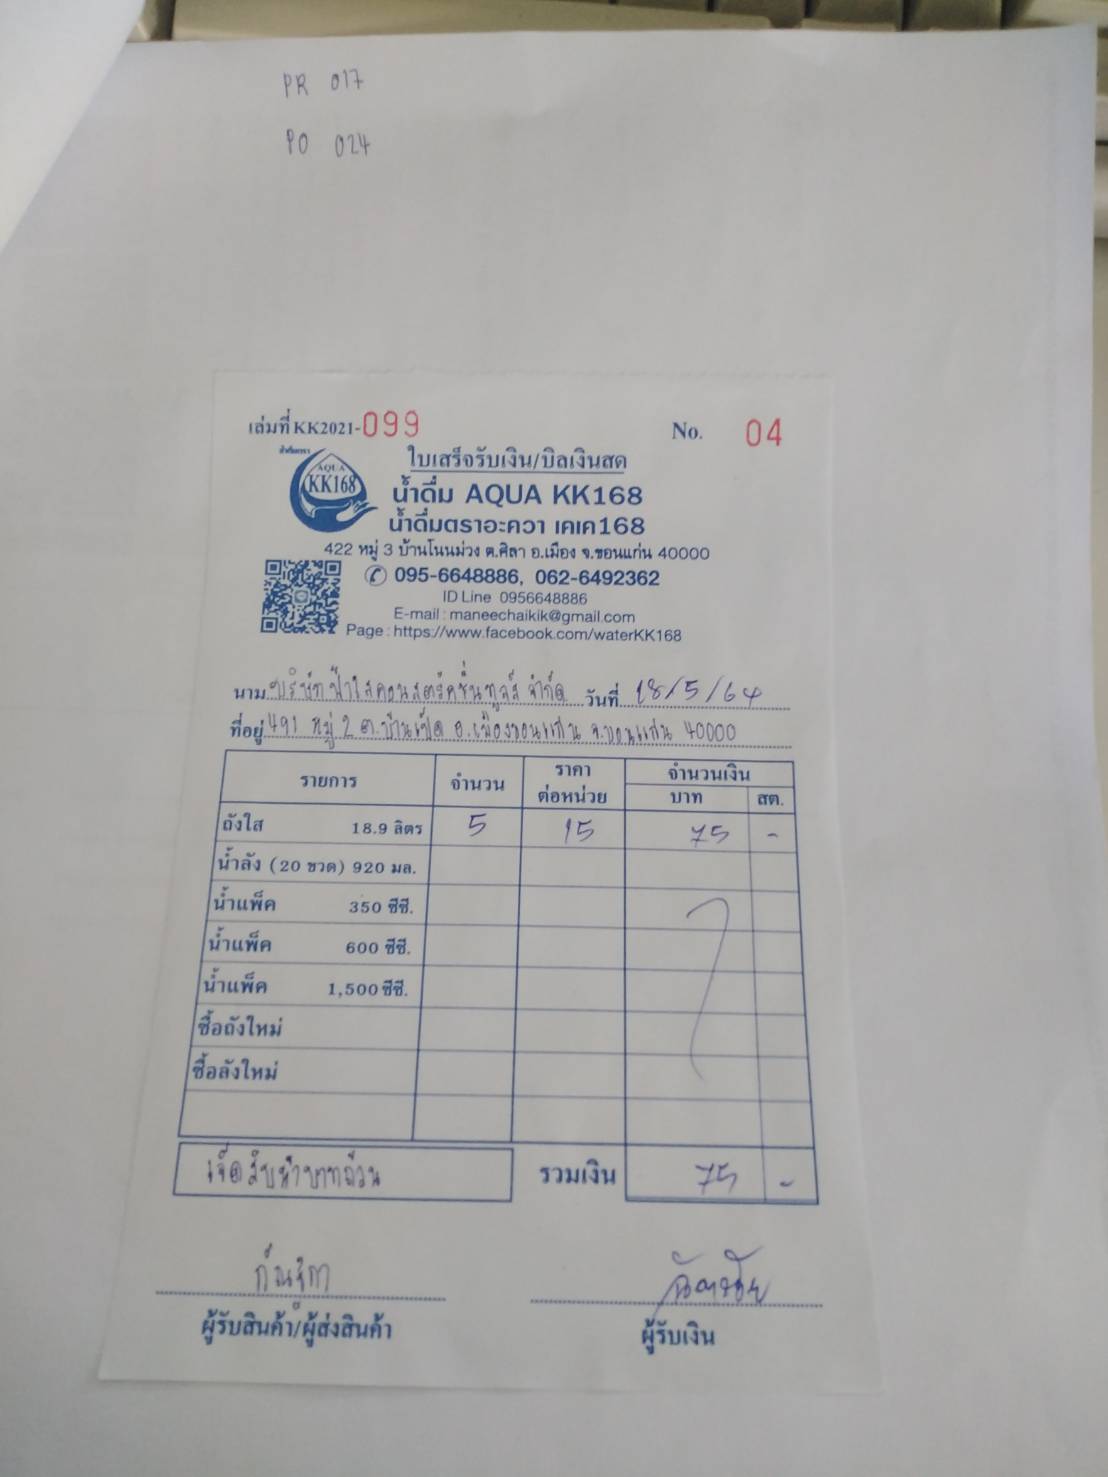 PR 017
PO 024
เล่มที่ KK2021-099 No. 04
ใบเสร็จรับเงิน/บิลเงินสด
AQUA
KK168
น้ำดื่ม AQUA KK168
น้ำดื่มตราอะควา เคเค168
422 หมู่ 3 บ้านโนนม่วง ต.ศิลา อ.เมือง จ.ขอนแก่น 40000
095-6648886, 062-6492362
ID Line 0956648886
E-mail : maneechaikik@gmail.com
Page : https://www.facebook.com/waterKK168
นาม บริษัท ป้าใสคอนสตรัคชั่นทูลส์ จำกัด วันที่ 18/5/64
ที่อยู่ 491 หมู่ 2 ต.บ้านเป็ด อ.เมืองขอนแก่น จ.ขอนแก่น 40000
รายการ จำนวน ราคาต่อหน่วย จำนวนเงิน
บาท สต.
ถังใส 18.9 ลิตร 5 15 75 -
น้ำลัง (20 ขวด) 920 มล.
น้ำแพ็ค 350 ซีซี.
น้ำแพ็ค 600 ซีซี.
น้ำแพ็ค 1,500 ซีซี.
ซื้อถังใหม่
ซื้อลังใหม่
เจ็ดสิบห้าบาทถ้วน รวมเงิน 75 -
ผู้รับสินค้า/ผู้ส่งสินค้า ผู้รับเงิน